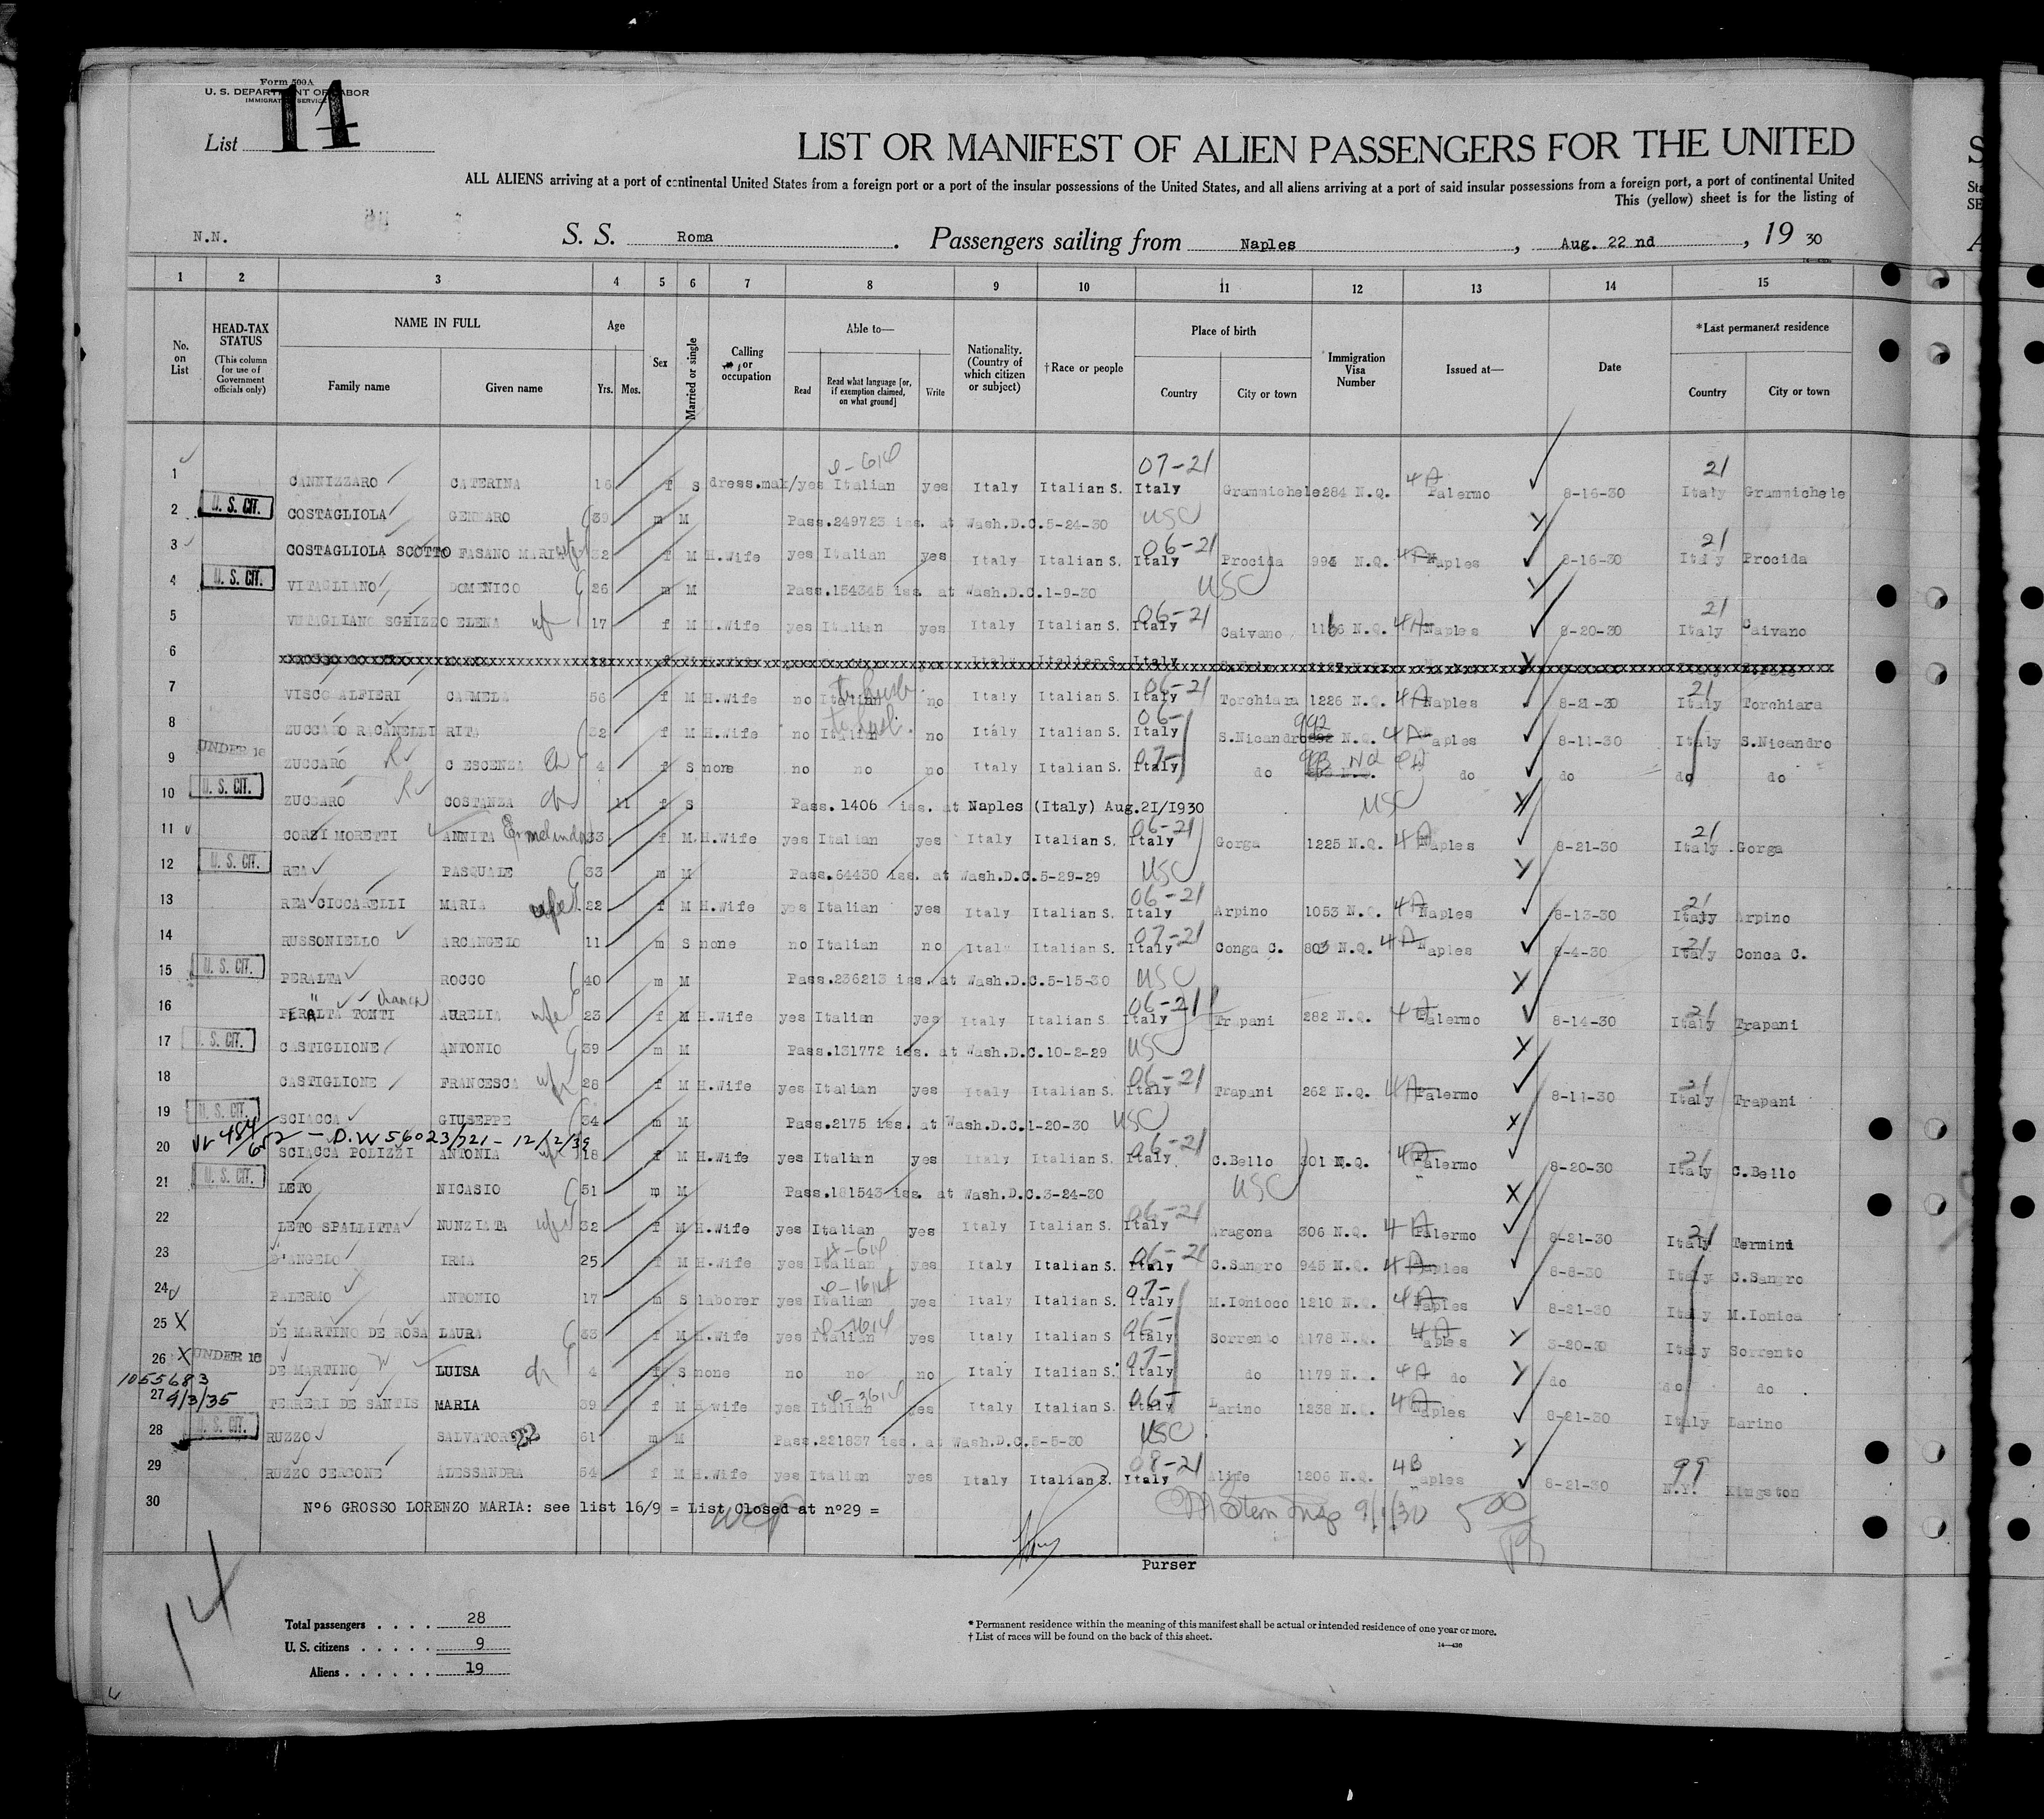 Form 500A
U. S. DEPARTMENT OF LABOR
IMMIGRATION SERVICE
List 14
LIST OR MANIFEST OF ALIEN PASSENGERS FOR THE UNITED
ALL ALIENS arriving at a port of continental United States from a foreign port or a port of the insular possessions of the United States, and all aliens arriving at a port of said insular possessions from a foreign port, a port of continental United
This (yellow) sheet is for the listing of
N.N. S. S. Roma. Passengers sailing from Naples, Aug. 22 nd, 19 30
1 2 3 4 5 6 7 8 9 10 11 12 13 14 15
No. on List
HEAD-TAX STATUS (This column for use of Government officials only)
NAME IN FULL Family name Given name
Age Yrs. Mos.
Sex
Married or single
Calling or occupation
Able to— Read Read what language [or, if exemption claimed, on what ground] Write
Nationality. (Country of which citizen or subject)
†Race or people
Place of birth Country City or town
Immigration Visa Number
Issued at—
Date
*Last permanent residence Country City or town
1 CANNIZZARO CATERINA 16 f S dress.mak/yes Italian yes Italy Italian S. Italy 07-21 Grammichele 284 N.Q. 4A Palermo 8-16-30 21 Italy Grammichele
2 U. S. CIT. COSTAGLIOLA GENNARO 39 m M Pass.249723 iss. at Wash.D.C.5-24-30 USC
3 COSTAGLIOLA SCOTTO FASANO MARI wife 32 f M H.Wife yes Italian yes Italy Italian S. Italy 06-21 Procida 996 N.Q. 4A Naples 8-16-30 21 Italy Procida
4 U. S. CIT. VITAGLIANO DOMENICO 26 m M Pass.154345 iss. at Wash.D.C.1-9-30 USC
5 VITAGLIANO SGHIZZO ELENA wf 17 f M H.Wife yes Italian yes Italy Italian S. Italy 06-21 Caivano 1166 N.Q. 4A Naples 8-20-30 21 Italy Caivano
6
7 VISCO ALFIERI CARMELA 56 f M H.Wife no Italian to husb. no Italy Italian S. Italy 06-21 Torchiara 1226 N.Q. 4A Naples 8-21-30 21 Italy Torchiara
8 ZUCCARO RACANELLI RITA 32 f M H.Wife no Italian to husb. no Italy Italian S. Italy 06- S.Nicandro 992 N.Q. 4A Naples 8-11-30 Italy S.Nicandro
9 UNDER 16 ZUCCARO C ESCENZA ch 4 f S none no no no Italy Italian S. Italy 07- do 993 NQ do do do do
10 U. S. CIT. ZUCCARO COSTANZA ch 11 f S Pass. 1406 iss. at Naples (Italy) Aug.21/1930 USC
11 CORSI MORETTI ANNITA Ermelinda 33 f M.H.Wife yes Italian yes Italy Italian S. Italy 06-21 Gorga 1225 N.Q. 4A Naples 8-21-30 21 Italy Gorga
12 U. S. CIT. REA PASQUALE 33 m M Pass.64430 iss. at Wash.D.C.5-29-29 USC
13 REA CICCARELLI MARIA wife 22 f M H.Wife yes Italian yes Italy Italian S. Italy 06-21 Arpino 1053 N.Q. 4A Naples 8-13-30 21 Italy Arpino
14 RUSSONIELLO ARCANGELO 11 m S none no Italian no Italy Italian S. Italy 07-21 Conga C. 803 N.Q. 4A Naples 8-4-30 21 Italy Conca C.
15 U. S. CIT. PERALTA ROCCO 40 m M Pass.236213 iss. at Wash.D.C.5-15-30 USC
16 PERALTA TONTI AURELIA wife 23 f M H.Wife yes Italian yes Italy Italian S. Italy 06-21 Trapani 282 N.Q. 4A Palermo 8-14-30 21 Italy Trapani
17 U. S. CIT. CASTIGLIONE ANTONIO 39 m M Pass.131772 iss. at Wash.D.C.10-2-29 USC
18 CASTIGLIONE FRANCESCA wf 28 f M H.Wife yes Italian yes Italy Italian S. Italy 06-21 Trapani 262 N.Q. 4A Palermo 8-11-30 21 Italy Trapani
19 U. S. CIT. SCIACCA GIUSEPPE 34 m M Pass.2175 iss. at Wash.D.C.1-20-30 USC
D.W 56023/721 - 12/2/39
20 SCIACCA POLIZZI ANTONIA wf 18 f M H.Wife yes Italian yes Italy Italian S. Italy 06-21 C.Bello 301 N.Q. 4A Palermo 8-20-30 21 Italy C.Bello
21 U. S. CIT. LETO NICASIO 51 m M Pass.181543 iss. at Wash.D.C.3-24-30 USC
22 LETO SPALLITTA NUNZIATA wife 32 f M H.Wife yes Italian yes Italy Italian S. Italy 06-21 Aragona 306 N.Q. 4A Palermo 8-21-30 21 Italy Termini
23 D'ANGELO IRMA 25 f M H.Wife yes Italian yes Italy Italian S. Italy 06-21 C.Sangro 945 N.Q. 4A Naples 8-8-30 Italy C.Sangro
24 PALERMO ANTONIO 17 m S laborer yes Italian yes Italy Italian S. Italy 07- M.Ionioco 1210 N.Q. 4A Naples 8-21-30 Italy M.Ionica
25 X DE MARTINO DE ROSA LAURA 33 f M H.Wife yes Italian yes Italy Italian S. Italy 06- Sorrento 1178 N.Q. 4A Naples 8-20-30 Italy Sorrento
26 X UNDER 16 DE MARTINO LUISA ch 4 f S none no no no Italy Italian S. Italy 07- do 1179 N. 4A do do do do
1055683
27 9/3/35 FERRERI DE SANTIS MARIA 39 f M H wife yes Italian yes Italy Italian S. Italy 06- Larino 1238 N.Q. 4A Naples 8-21-30 Italy Larino
28 U. S. CIT. RUZZO SALVATORE 22 61 m M Pass.221837 iss. at Wash.D.C.5-5-30 USC
29 RUZZO CERCONE ALESSANDRA 54 f M H.Wife yes Italian yes Italy Italian S. Italy 08-21 Alife 1206 N.Q. 4B Naples 8-21-30 99 N.Y. Kingston
30 Nº6 GROSSO LORENZO MARIA: see list 16/9 = List Closed at nº29 =
9/1/30 500
Purser
14
Total passengers . . . . 28
U. S. citizens . . . . . 9
Aliens . . . . . . 19
* Permanent residence within the meaning of this manifest shall be actual or intended residence of one year or more.
† List of races will be found on the back of this sheet.
14—430